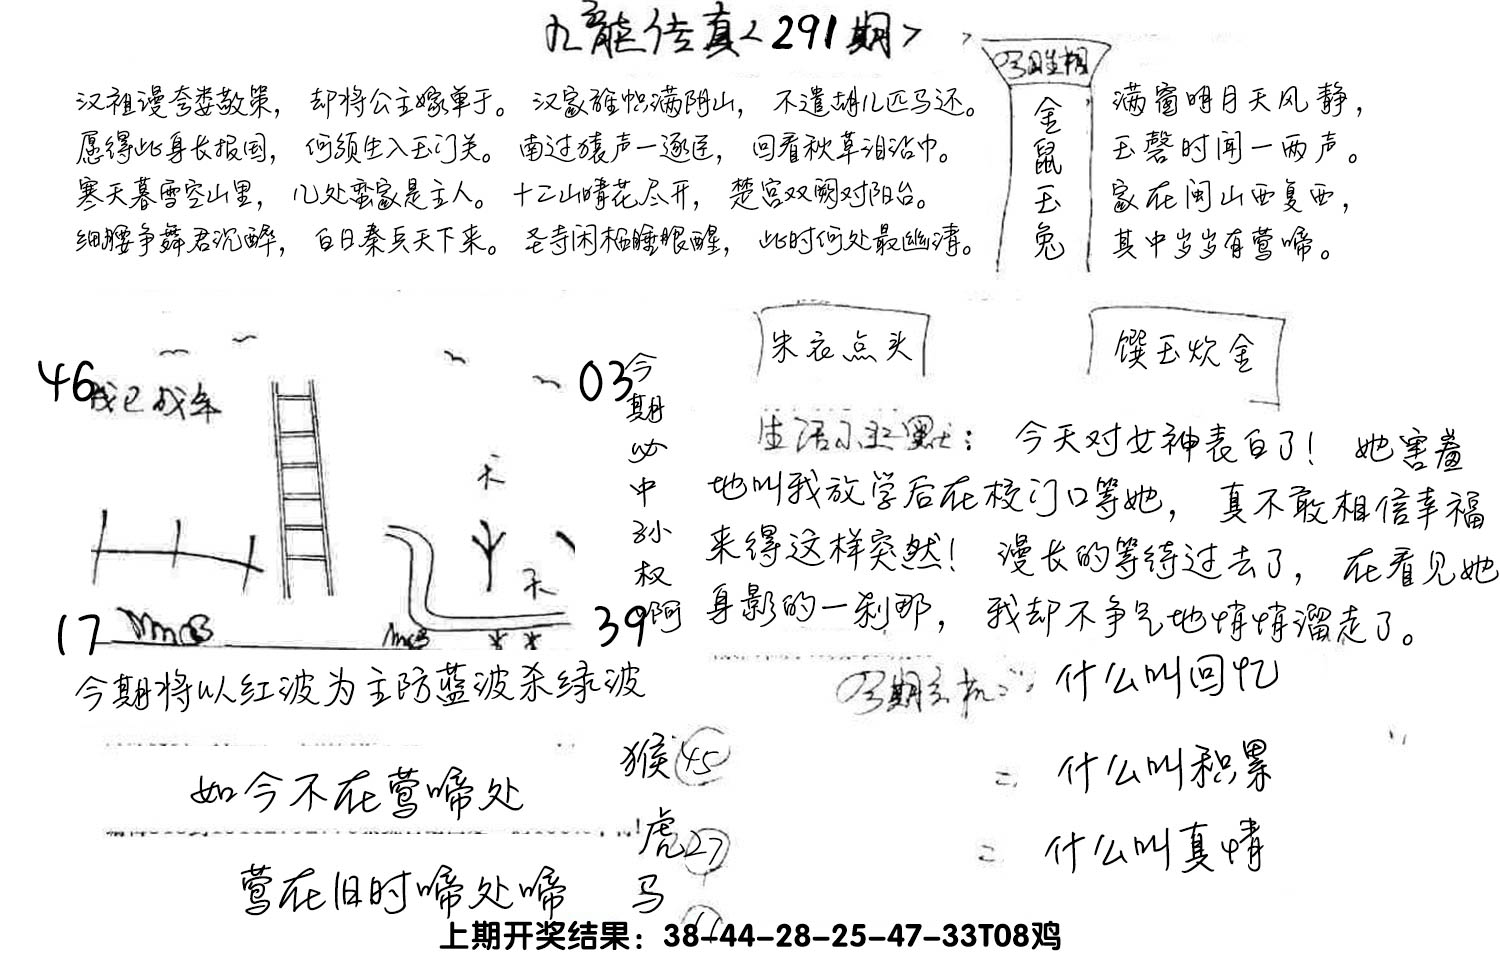 九龍传真<291期>
汉祖谩夸娄敬策，却将公主嫁单于。汉家旌帜满阴山，不遣胡儿匹马还。
愿得此身长报国，何须生入玉门关。南过猿声一逐臣，回看秋草泪沾巾。
寒天暮雪空山里，几处蛮家是主人。十二山晴花尽开，楚宫双阙对阳台。
细腰争舞君沉醉，白日秦兵天下来。圣寺闲栖睡眼醒，此时何处最幽清。
今期生相
金鼠玉兔
满窗明月天风静，
玉磬时闻一两声。
家在闽山西复西，
其中岁岁有莺啼。
46
03
17
39
天
今期必中孙权啊
朱衣点头
馔玉炊金
生活小幽默：今天对女神表白了！她害羞
地叫我放学后在校门口等她，真不敢相信幸福
来得这样突然！漫长的等待过去了，在看见她
身影的一刹那，我却不争气地悄悄溜走了。
今期将以红波为主防蓝波杀绿波
今期玄机：什么叫回忆
=什么叫积累
=什么叫真情
如今不在莺啼处
莺在旧时啼处啼
猴45
虎27
马
上期开奖结果：38-44-28-25-47-33T08鸡